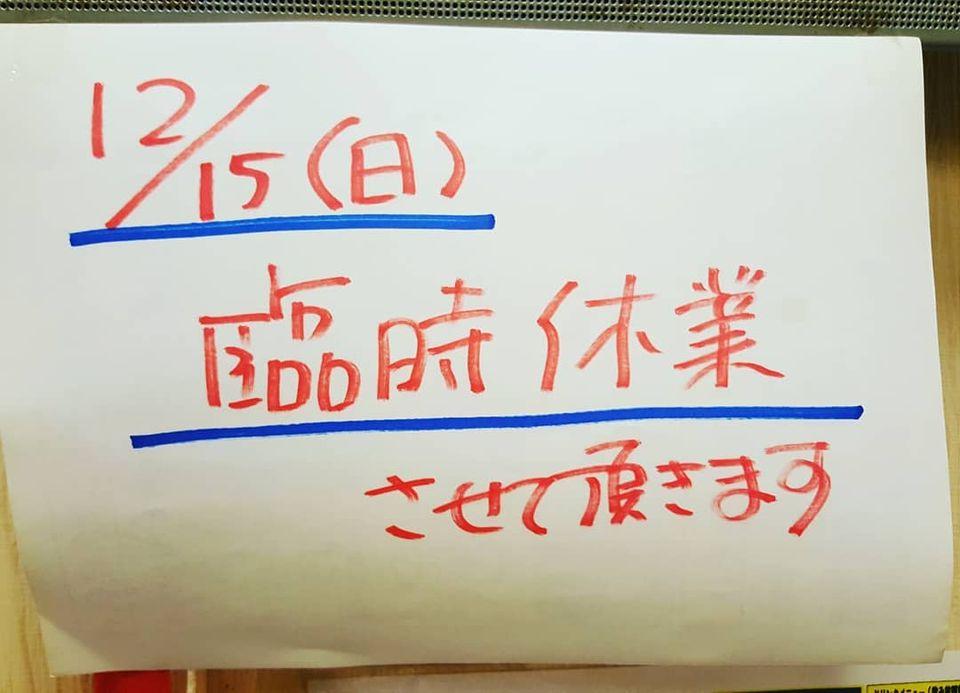 12/15(日)
臨時休業
させて頂きます